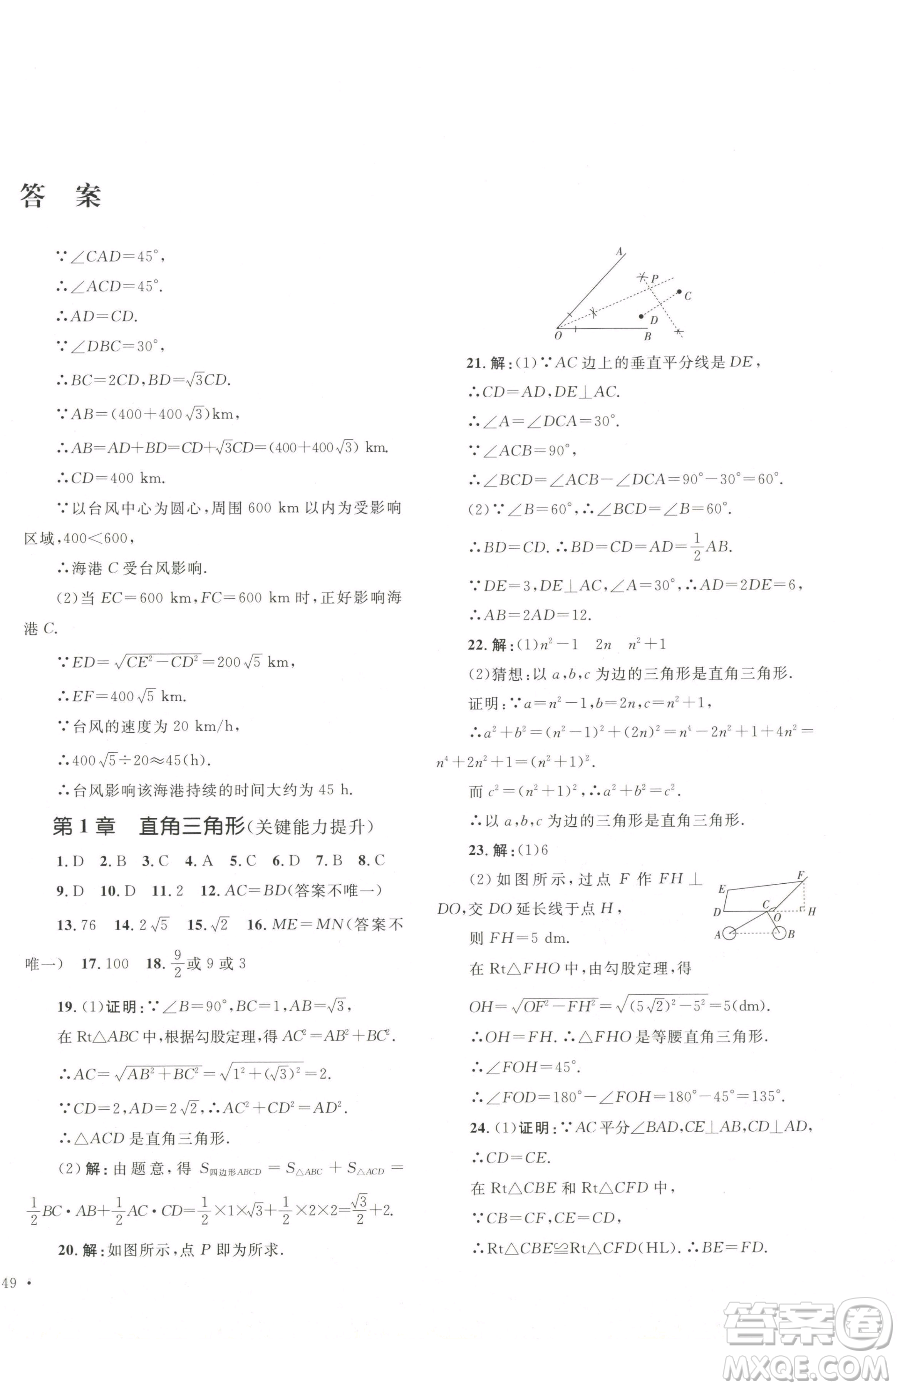 答　案
∵∠CAD=45°,
∴∠ACD=45°.
∴AD=CD.
∵∠DBC=30°,
∴BC=2CD,BD=√3CD.
∵AB=(400+400√3)km,
∴AB=AD+BD=CD+√3CD=(400+400√3)km.
∴CD=400 km.
∵以台风中心为圆心,周围 600 km 以内为受影响
区域,400<600,
∴海港 C 受台风影响.
(2)当 EC=600 km,FC=600 km 时,正好影响海
港 C.
∵ED=√(CE²-CD²)=200√5 km,
∴EF=400√5 km.
∵台风的速度为 20 km/h,
∴400√5÷20≈45(h).
∴台风影响该海港持续的时间大约为 45 h.
第 1 章　直角三角形(关键能力提升)
1. D　2. B　3. C　4. A　5. C　6. D　7. B　8. C
9. D　10. D　11. 2　12. AC=BD(答案不唯一)
13. 76　14. 2√5　15. √2　16. ME=MN(答案不
唯一)　17. 100　18. 9/2或 9 或 3
19. (1)证明:∵∠B=90°,BC=1,AB=√3,
在 Rt△ABC 中,根据勾股定理,得 AC²=AB²+BC².
∴AC=√(AB²+BC²)=√(1²+(√3)²)=2.
∵CD=2,AD=2√2,∴AC²+CD²=AD².
∴△ACD 是直角三角形.
(2) 解: 由 题 意, 得 S四边形ABCD = S△ABC + S△ACD =
1/2BC·AB+1/2AC·CD=1/2×1×√3+1/2×2×2=√3/2+2.
20. 解:如图所示,点 P 即为所求.
49 ·
A
P
C
D
O
B
21. 解:(1)∵AC 边上的垂直平分线是 DE,
∴CD=AD,DE⊥AC.
∴∠A=∠DCA=30°.
∵∠ACB=90°,
∴∠BCD=∠ACB-∠DCA=90°-30°=60°.
(2)∵∠B=60°,∴∠BCD=∠B=60°.
∴BD=CD.∴BD=CD=AD=1/2AB.
∵DE=3,DE⊥AC,∠A=30°,∴AD=2DE=6,
∴AB=2AD=12.
22. 解:(1)n²-1　2n　n²+1
(2)猜想:以 a,b,c 为边的三角形是直角三角形.
证明:∵a=n²-1,b=2n,c=n²+1,
∴a²+b²=(n²-1)²+(2n)²=n⁴-2n²+1+4n²=
n⁴+2n²+1=(n²+1)².
而 c²=(n²+1)²,∴a²+b²=c².
∴以 a,b,c 为边的三角形是直角三角形.
23. 解:(1)6
(2) 如 图 所 示, 过 点 F 作 FH ⊥
DO,交 DO 延长线于点 H,
则 FH=5 dm.
E
F
D
C
O
H
A
B
在 Rt△FHO 中,由勾股定理,得
OH=√(OF²-FH²)=√((5√2)²-5²)=5(dm).
∴OH=FH.∴△FHO 是等腰直角三角形.
∴∠FOH=45°.
∴∠FOD=180°-∠FOH=180°-45°=135°.
24. (1)证明:∵AC 平分∠BAD,CE⊥AB,CD⊥AD,
∴CD=CE.
在 Rt△CBE 和 Rt△CFD 中,
∵CB=CF,CE=CD,
∴Rt△CBE≌Rt△CFD(HL).∴BE=FD.
答案卷
MXQE.COM